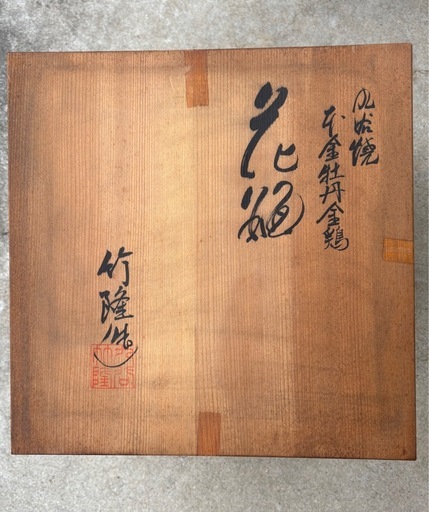 九谷焼
本金牡丹金鶏
花瓶
竹隆造